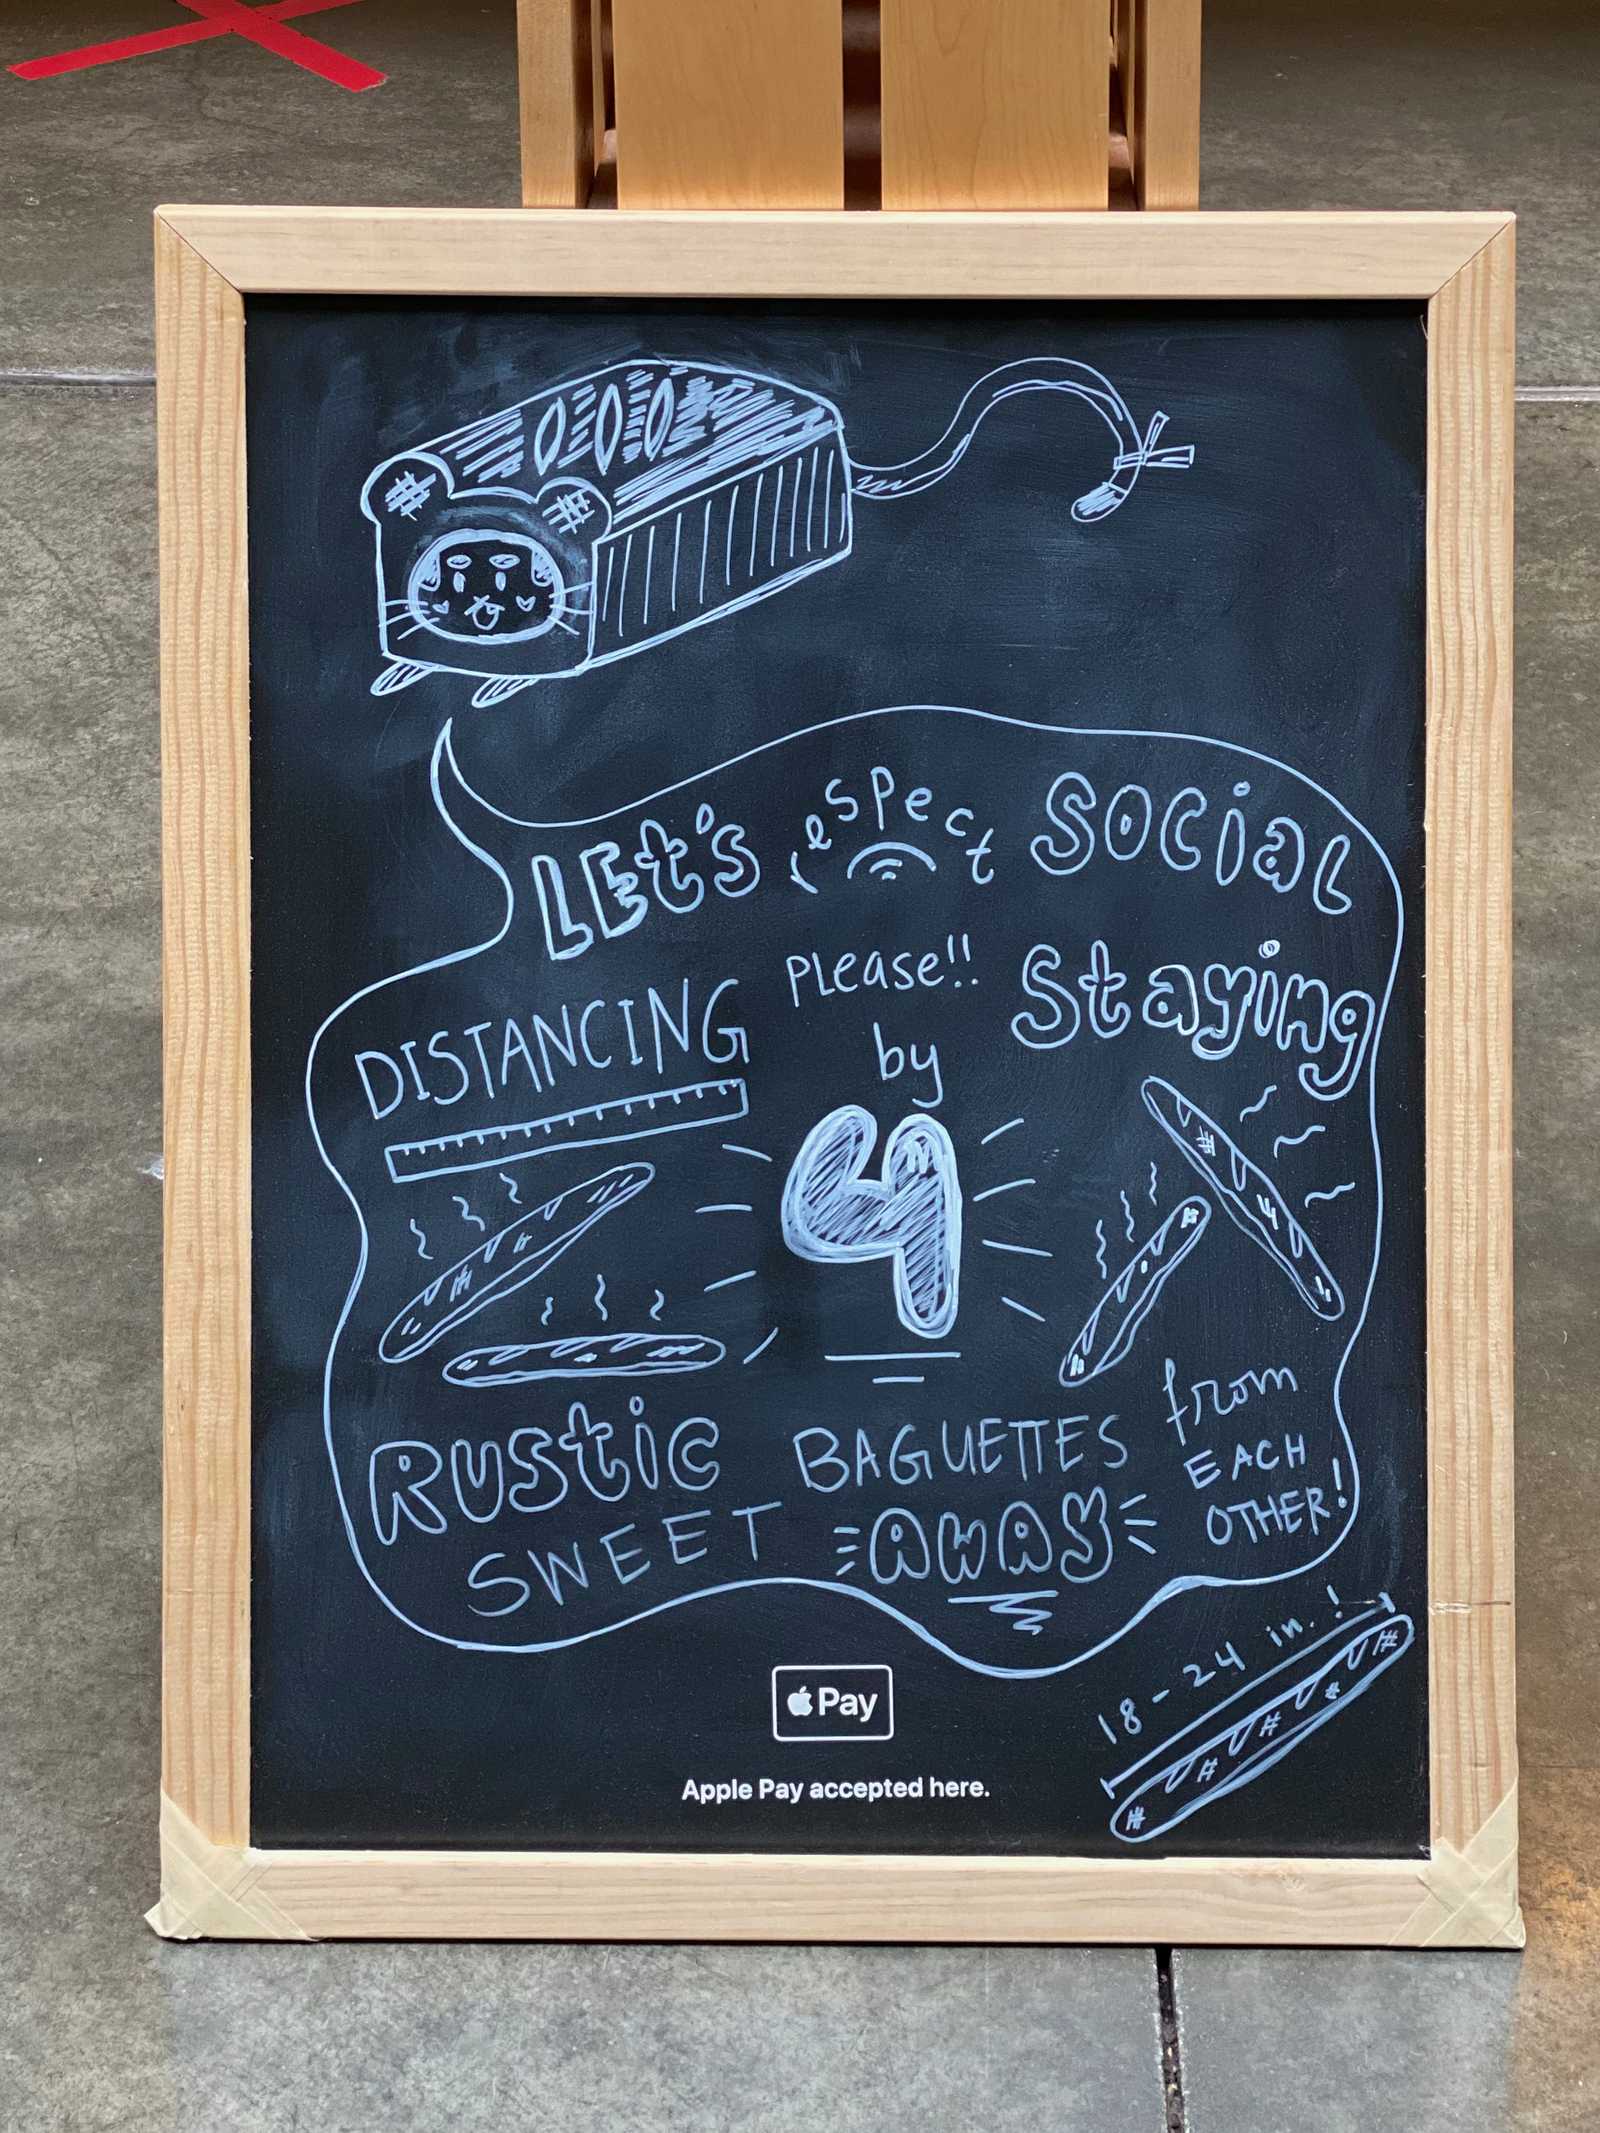 LEt's respect SOCiaL
DISTANCING PLease!!
by Staying
4
RUStic BAGUETTES from
SWEET AWAY EACH
OTHER!
18-24 in.!
Pay
Apple Pay accepted here.